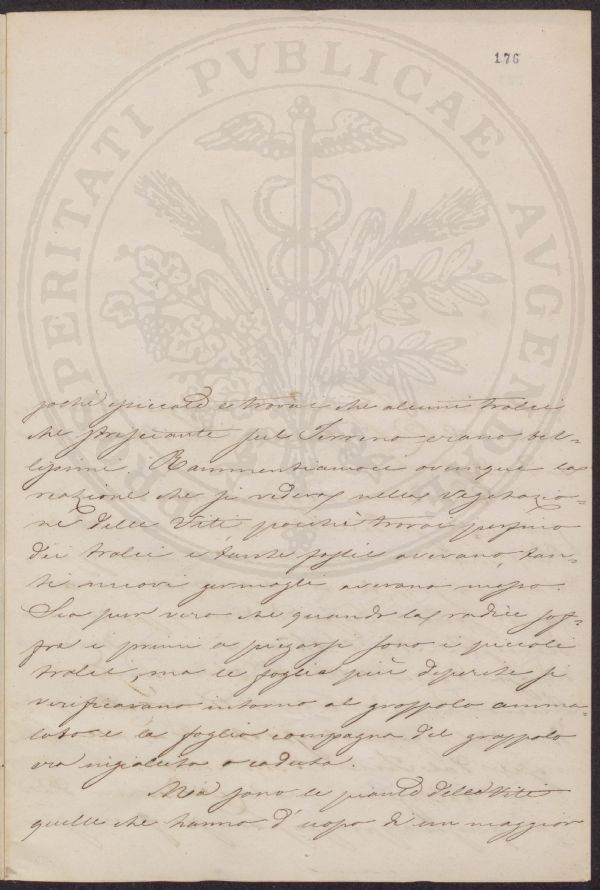 176
PROSPERITATI PVBLICAE AVGENDAE
pochi spiccate e trovai che alcuni tralci
che strisciante sul Terreno erano bel-
lissimi. Rammentiamoci ovunque la
reazione che si vedeva nella vegetazio-
ne delle Viti, poiché trovai persino
dei tralci e tante foglie avevano, tan-
ti nuovi germogli avevano messo.
Sia pur vero che quando la radice sof-
fra i primi a piegarsi sono i piccoli
tralci, ma le foglie più deperite si
verificavano intorno al grappolo amma-
lato e la foglia compagna del grappolo
era ingiallita o caduta.
Ma sono le piante delle Viti
quelle che hanno d'uopo di un maggior